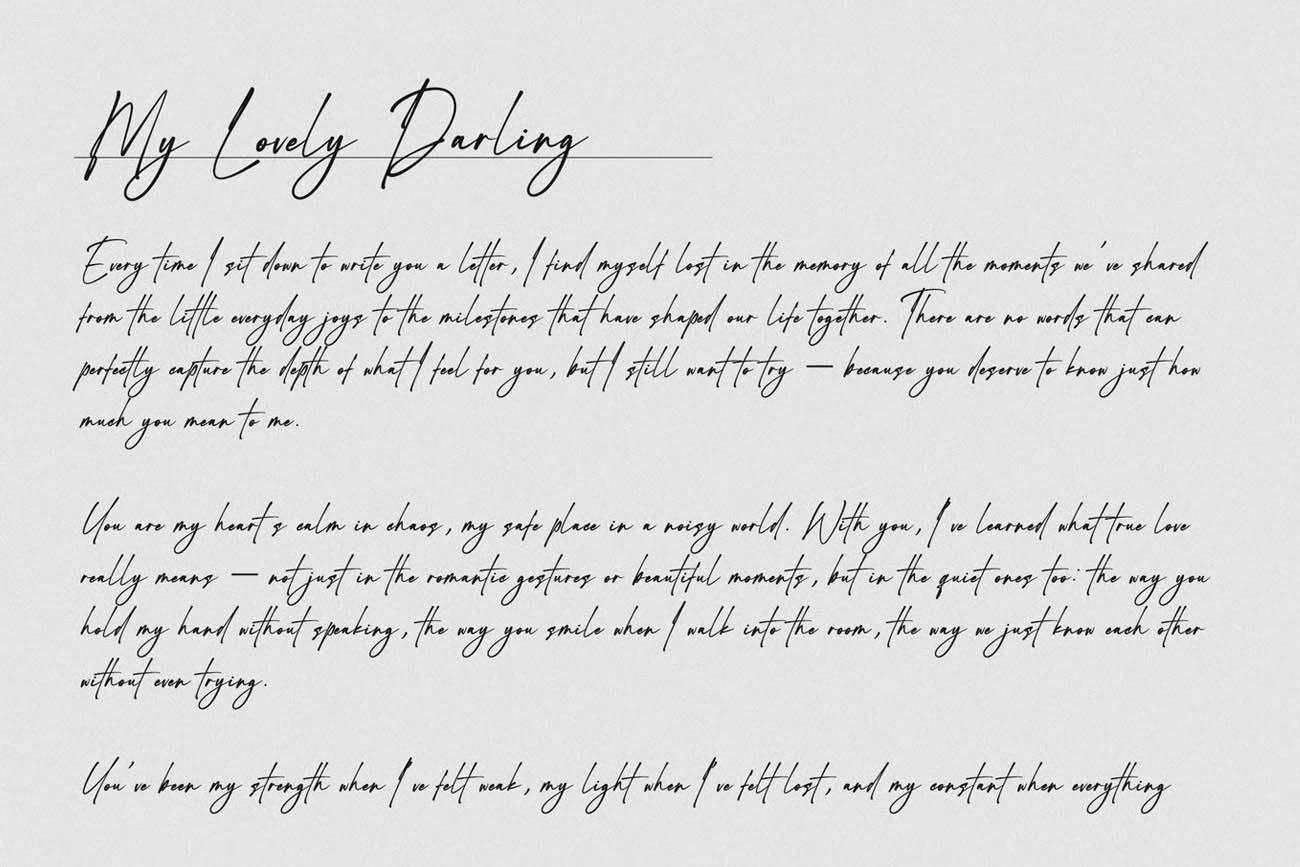 My Lovely Darling
Every time I sit down to write you a letter, I find myself lost in the memory of all the moments we've shared
from the little everyday joys to the milestones that have shaped our life together. There are no words that can
perfectly capture the depth of what I feel for you, but I still want to try — because you deserve to know just how
much you mean to me.
You are my heart's calm in chaos, my safe place in a noisy world. With you, I've learned what true love
really means — not just in the romantic gestures or beautiful moments, but in the quiet ones too: the way you
hold my hand without speaking, the way you smile when I walk into the room, the way we just know each other
without even trying.
You've been my strength when I've felt weak, my light when I've felt lost, and my constant when everything